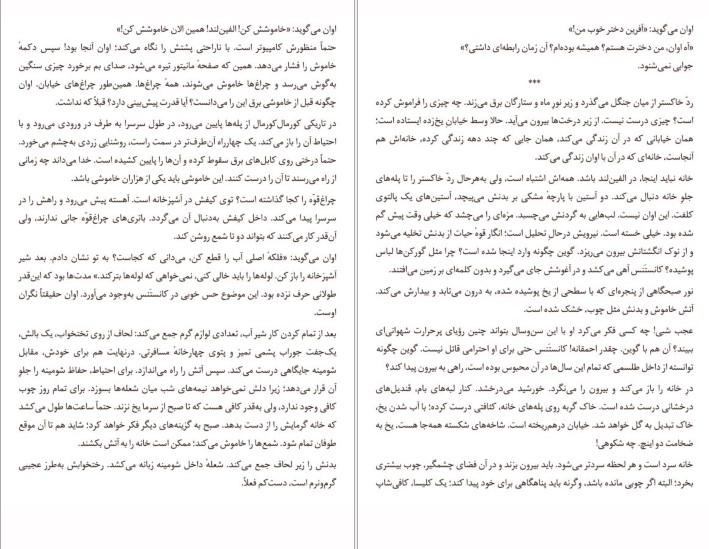 اوان می‌گوید: «آفرین دختر خوب من!»
«اَه اوان، من دخترت هستم؟ همیشه بوده‌ام؟ آن زمان رابطه‌ای داشتی؟»
جوابی نمی‌شنود.
***
ردّ خاکستر از میان جنگل می‌گذرد و زیر نور ماه و ستارگان برق می‌زند. چه چیزی را فراموش کرده
است؟ چیزی درست نیست. از زیر درخت‌ها بیرون می‌آید. حالا وسط خیابان یخ‌زده ایستاده است؛
همان خیابانی که در آن زندگی می‌کند، همان جایی که چند دهه زندگی کرده، خانه‌اش هم
آنجاست، خانه‌ای که در آن با اوان زندگی می‌کند.
خانه نباید اینجا، در الفین‌لند باشد. همه‌اش اشتباه است، ولی به‌هرحال ردّ خاکستر را تا پله‌های
جلوِ خانه دنبال می‌کند. دو آستین با پارچهٔ مشکی بر بدنش می‌پیچد، آستین‌های یک پالتوی
کلفت. این اوان نیست. لب‌هایی به گردنش می‌چسبد. مزه‌ای را می‌چشد که خیلی وقت پیش گم
شده بود. خیلی خسته است. نیرویش درحال تحلیل است؛ انگار قوهٔ حیات از بدنش تخلیه می‌شود
و از نوک انگشتانش بیرون می‌ریزد. گوین چگونه وارد اینجا شده است؟ چرا مثل گورکن‌ها لباس
پوشیده؟ کانستَنس آهی می‌کشد و در آغوشش جای می‌گیرد و بدون کلمه‌ای بر زمین می‌افتند.
نور صبحگاهی از پنجره‌ای که با سطحی از یخ پوشیده شده، به درون می‌تابد و بیدارش می‌کند.
آتش خاموش و بدنش مثل چوب، خشک شده است.
عجب شبی! چه کسی فکر می‌کرد او با این سن‌وسال بتواند چنین رؤیای پرحرارت شهوانی‌ای
ببیند؟ آن هم با گوین. چقدر احمقانه! کانستَنس حتی برای او احترامی قائل نیست. گوین چگونه
توانسته از داخل طلسمی که تمام این سال‌ها در آن محبوس بوده است، راهی به بیرون پیدا کند؟
درِ خانه را باز می‌کند و بیرون را می‌نگرد. خورشید می‌درخشد. کنار لبه‌های بام، قندیل‌های
درخشانی درست شده است. خاک گربه روی پله‌های خانه، کثافتی درست کرده؛ با آب شدن یخ،
خاک تبدیل به گل خواهد شد. خیابان درهم‌ریخته است. شاخه‌های شکسته همه‌جا هست، یخ به
ضخامت دو اینچ. چه شکوهی!
خانه سرد است و هر لحظه سردتر می‌شود. باید بیرون بزند و در آن فضای چشمگیر، چوب بیشتری
بخرد؛ البته اگر چوبی مانده باشد، وگرنه باید پناهگاهی برای خود پیدا کند؛ یک کلیسا، کافی‌شاپ
اوان می‌گوید: «خاموشش کن! الفین‌لند! همین الان خاموشش کن!»
حتماً منظورش کامپیوتر است. با ناراحتی پشتش را نگاه می‌کند؛ اوان آنجا بود! سپس دکمهٔ
خاموش را فشار می‌دهد. همین که صفحهٔ مانیتور تیره می‌شود، صدای بم برخورد چیزی سنگین
به‌گوش می‌رسد و چراغ‌ها خاموش می‌شوند، همهٔ چراغ‌ها. همین‌طور چراغ‌های خیابان. اوان
چگونه قبل از خاموشی برق این را می‌دانست؟ آیا قدرت پیش‌بینی دارد؟ قبلاً که نداشت.
در تاریکی کورمال‌کورمال از پله‌ها پایین می‌رود، در طول سرسرا به طرف در ورودی می‌رود و با
احتیاط آن را باز می‌کند. یک چهارراه آن‌طرف‌تر در سمت راست، روشنایی زردی به‌چشم می‌خورد.
حتماً درختی روی کابل‌های برق سقوط کرده و آن‌ها را پایین کشیده است. خدا می‌داند چه زمانی
از راه می‌رسند تا آن را درست کنند. این خاموشی باید یکی از هزاران خاموشی باشد.
چراغ‌قوّه را کجا گذاشته است؟ توی کیفش در آشپزخانه است. آهسته پیش می‌رود و راهش را در
سرسرا پیدا می‌کند. داخل کیفش به‌دنبال آن می‌گردد. باتری‌های چراغ‌قوّه جانی ندارند، ولی
آن‌قدر کار می‌کنند که بتواند دو تا شمع روشن کند.
اوان می‌گوید: «فلکهٔ اصلی آب را قطع کن، می‌دانی که کجاست؟ به تو نشان دادم. بعد شیر
آشپزخانه را باز کن. لوله‌ها را باید خالی کنی، نمی‌خواهی که لوله‌ها بترکند.» مدت‌ها بود که این‌قدر
طولانی حرف نزده بود. این موضوع حس خوبی در کانستَنس به‌وجود می‌آورد. اوان حقیقتاً نگران
اوست.
بعد از تمام کردن کار شیر آب، تعدادی لوازم گرم جمع می‌کند: لحاف از روی تختخواب، یک بالش،
یک‌جفت جوراب پشمی تمیز و پتوی چهارخانهٔ مسافرتی. درنهایت هم برای خودش، مقابل
شومینه جایگاهی درست می‌کند. سپس آتش را راه می‌اندازد. برای احتیاط، حفاظ شومینه را جلوِ
آن قرار می‌دهد؛ زیرا دلش نمی‌خواهد نیمه‌های شب میان شعله‌ها بسوزد. برای تمام روز چوب
کافی وجود ندارد، ولی به‌قدر کافی هست که تا صبح از سرما یخ نزند. حتماً ساعت‌ها طول می‌کشد
که خانه گرمایش را از دست بدهد. صبح به گزینه‌های دیگر فکر خواهد کرد؛ شاید هم تا آن موقع
طوفان تمام شود. شمع‌ها را خاموش می‌کند؛ ممکن است خانه را به آتش بکشند.
بدنش را زیر لحاف جمع می‌کند. شعلهٔ داخل شومینه زبانه می‌کشد. رختخوابش به‌طرز عجیبی
گرم‌ونرم است، دست‌کم فعلاً.